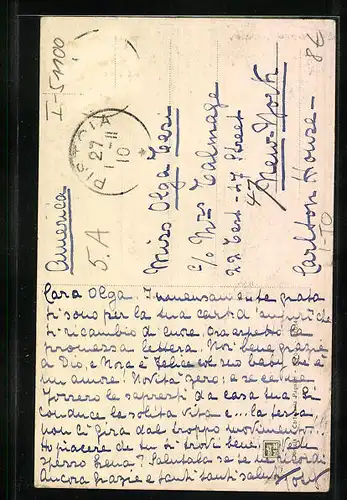 I-51100
8£
America
5. A
PISTOIA
27
11
10
Miss Olga
c/o Mrs Talmage
22 West - 47 Street
47 New-York
Carlton House-
Cara Olga. Immensamente grata
ti sono per la tua cart. d'auguri che
ti ricambio di cuore. Ora aspetto la
promessa lettera. Noi bene grazie
a Dio, e Nora è felice col suo baby che è
un amore! Novità zero; e se ce ne
fossero le sapresti da casa tua. Si
conduce la solita vita e... la testa
non ci gira dal troppo movimento.
Ho piacere che tu ti trovi bene. Vedi
spesso Lena? Salutala se te ne ricordi
Ancora grazie e tanti tanti saluti